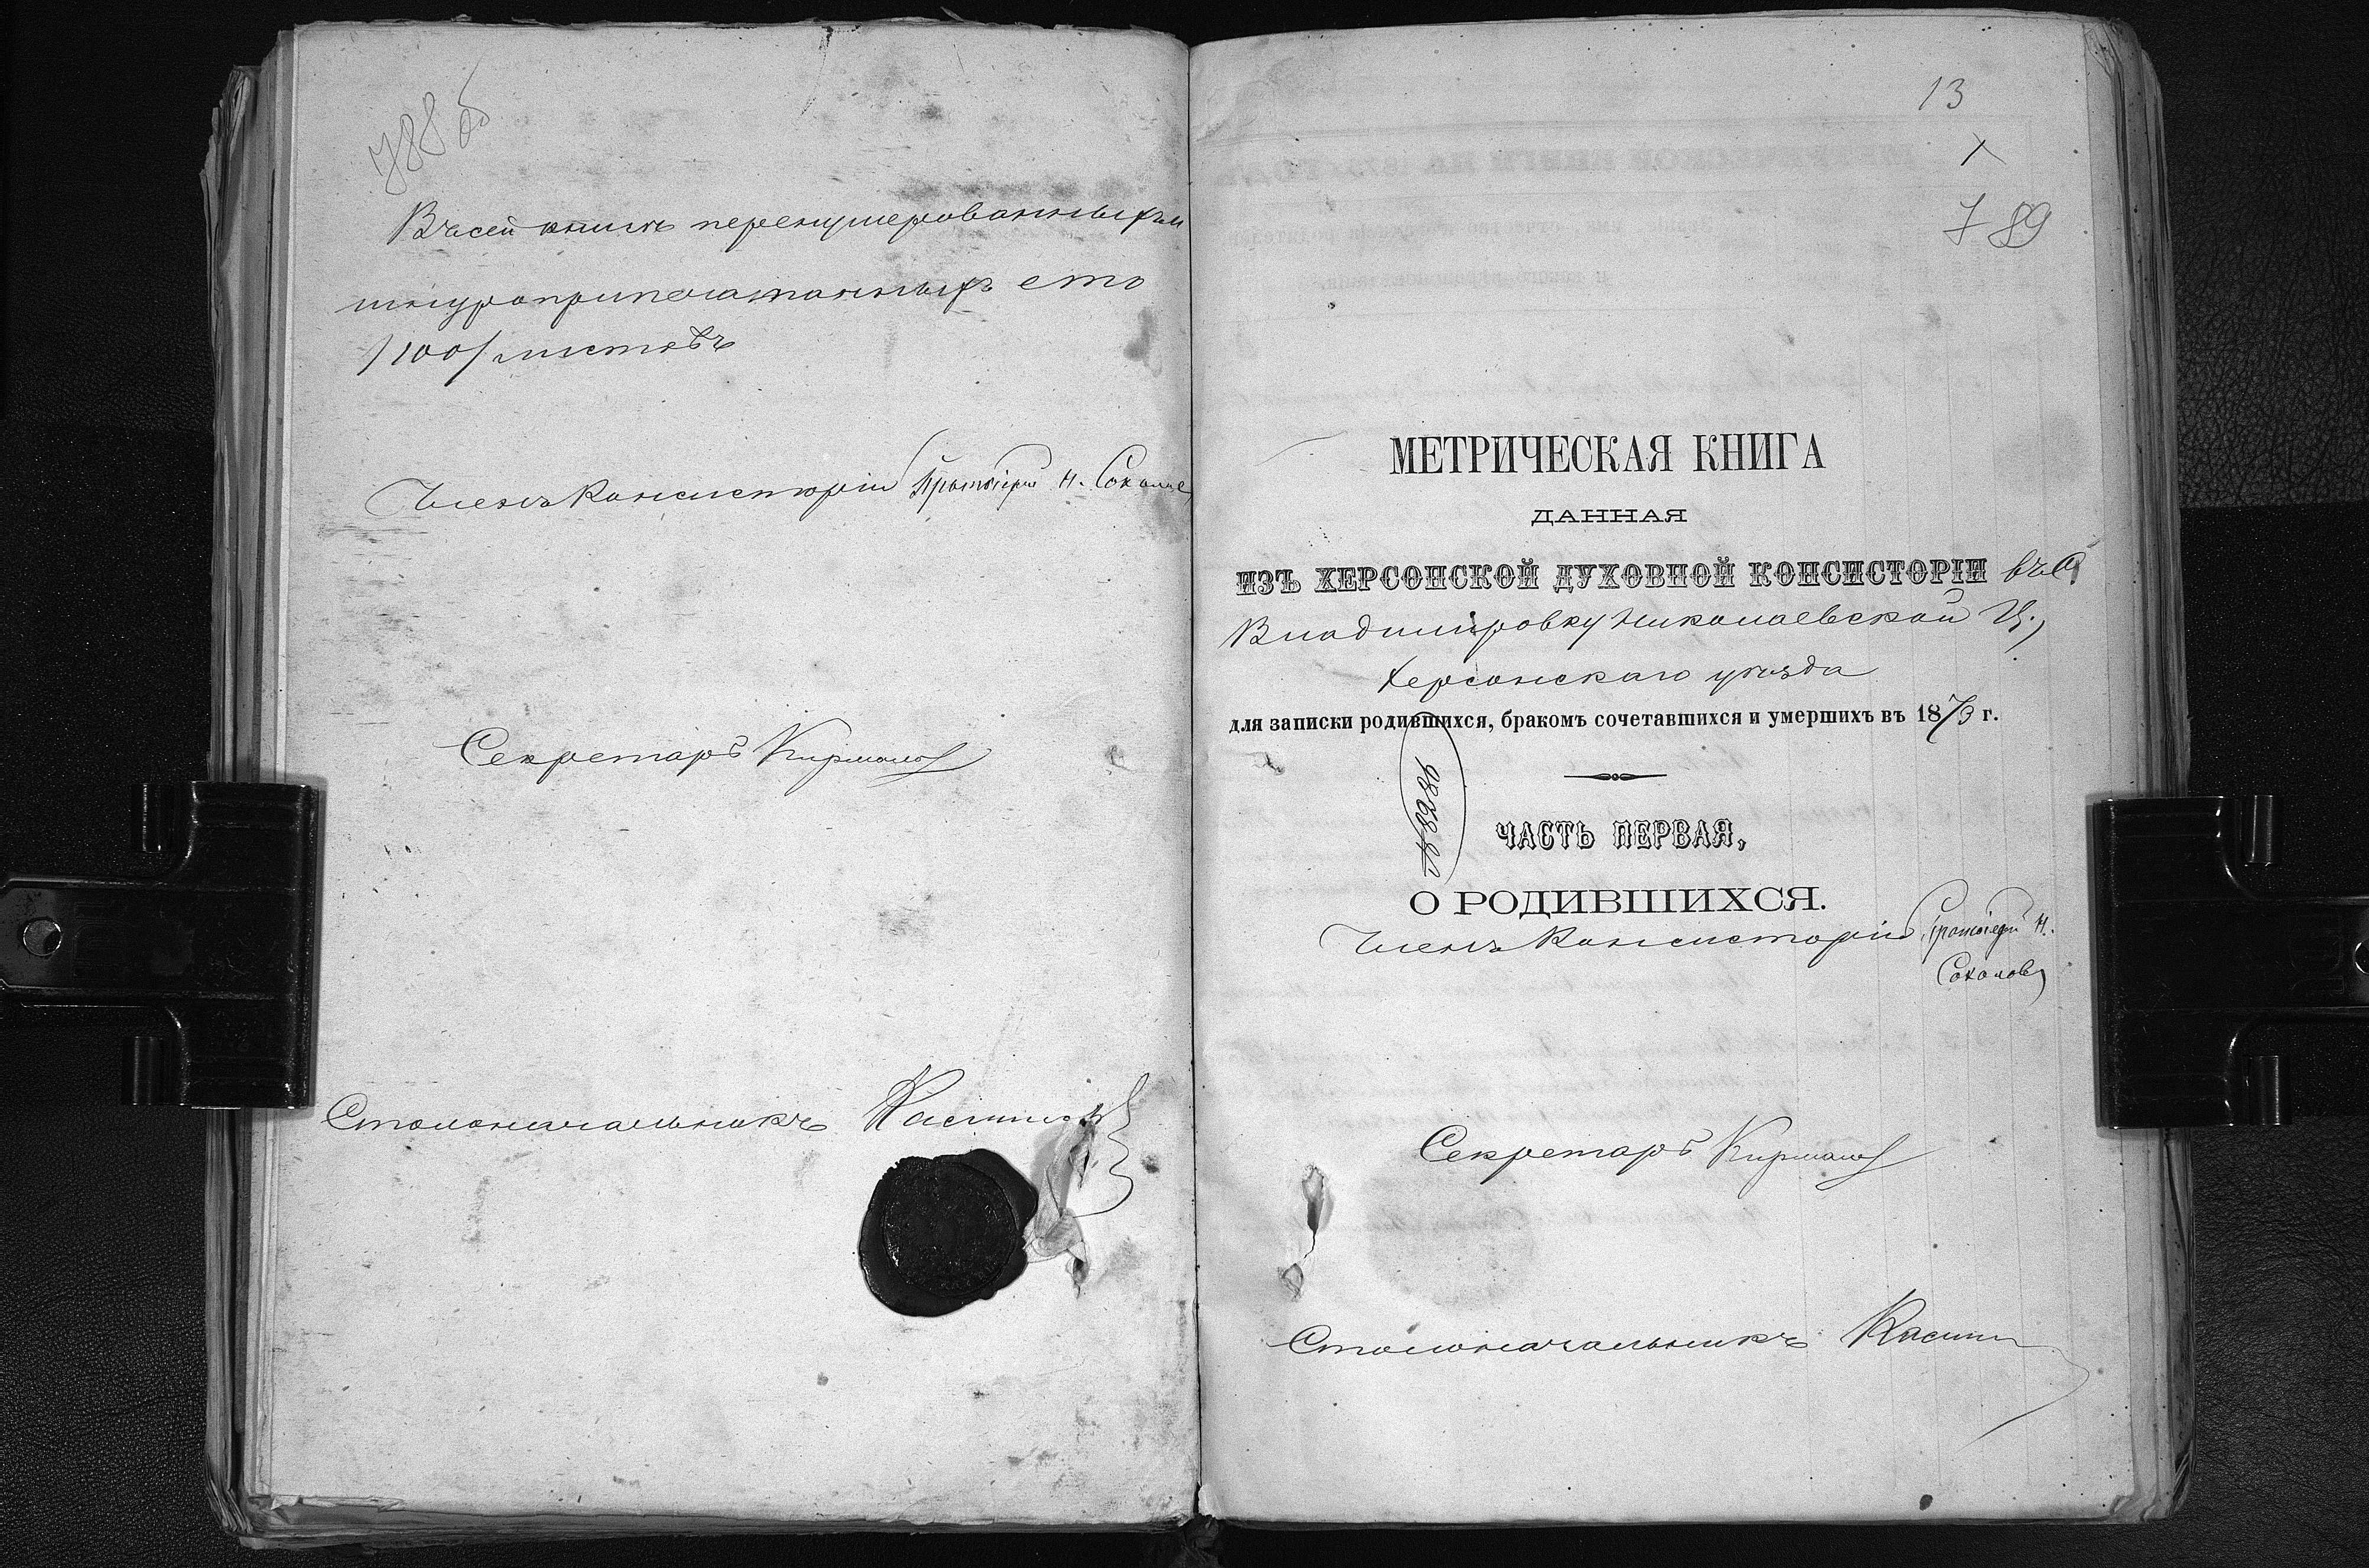 788 об
Въ сей книгѣ перенумерованныхъ и
шнуроприпечатанныхъ сто
/100/ листовъ
Членъ Консисторіи Протоіерей Н. Соколов
Секретарь
Столоначальникъ
13
1
789
МЕТРИЧЕСКАЯ КНИГА
ДАННАЯ
ИЗЪ ХЕРСОНСКОЙ ДУХОВНОЙ КОНСИСТОРІИ въ С.
Владиміровку Николаевской Ц.,
Херсонскаго уѣзда
для записки родившихся, бракомъ сочетавшихся и умершихъ въ 1873 г.
ЧАСТЬ ПЕРВАЯ,
О РОДИВШИХСЯ.
Членъ Консисторіи Протоіерей Н.
Соколовъ
Секретарь
Столоначальникъ